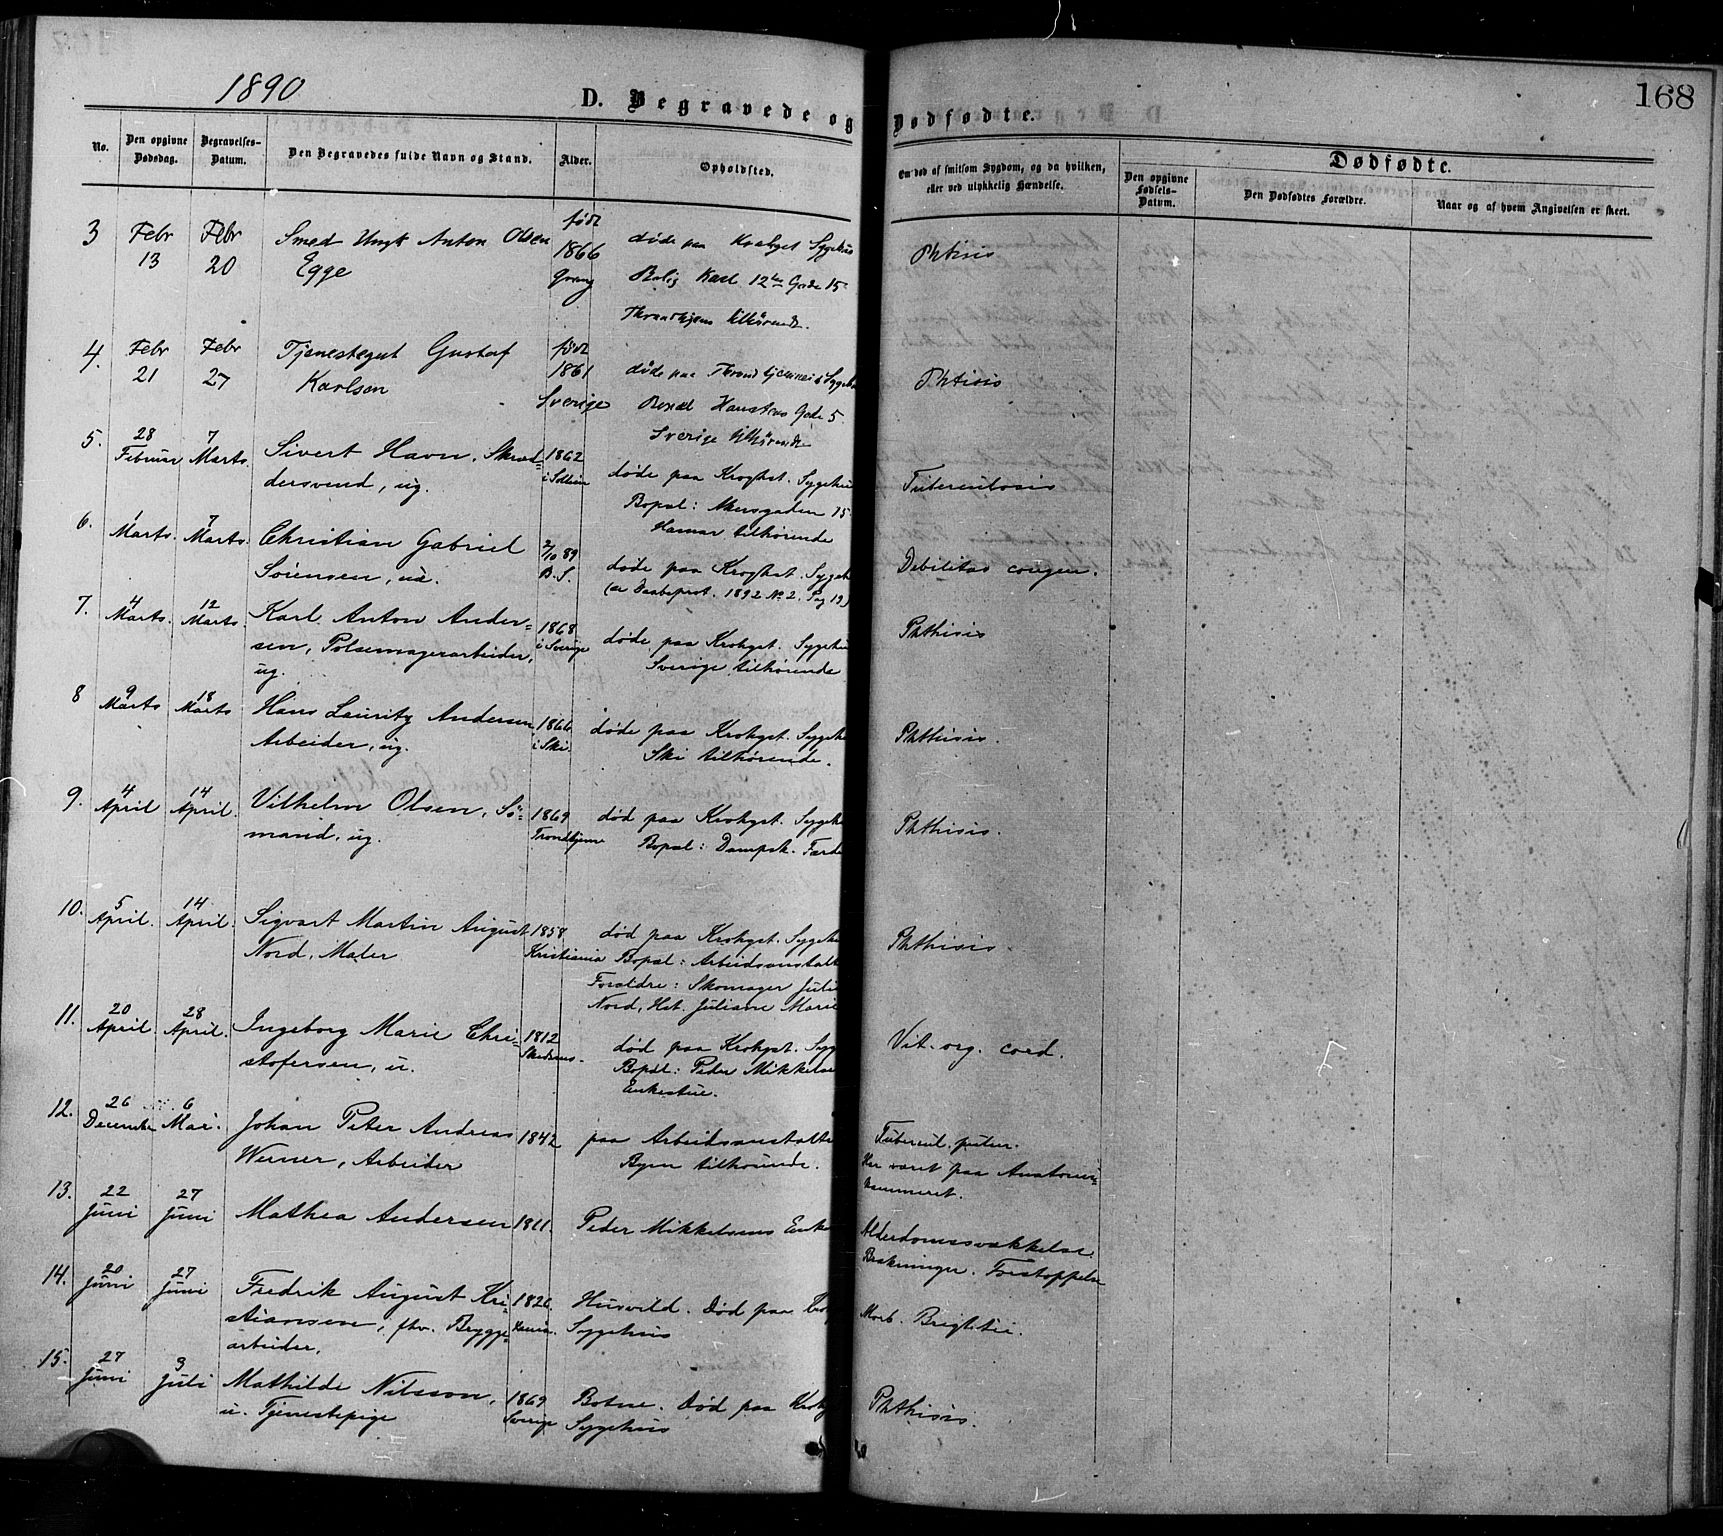 1890
D. Begravede og Dødfødte.
168
No.
Den opgivne Dødsdag.
Begravelses-Datum.
Den Begravedes fulde Navn og Stand.
Alder.
Opholdsted.
Om død af smitsom Sygdom, og da hvilken,
eller ved ulykkelig Hændelse.
Dødfødte.
Den opgivne Fødsels-Datum.
Den Dødfødtes Forældre.
Naar og af hvem Angivelsen er skeet.
3 Febr 13 Febr 20 Smed Ungk Anton Olsen født
Egge 1866 døde paa Sygehus Phtisis
Bolig 12te Gade 15
Throndhjem tilhørende.
4. Febr 21 Febr 27 Tjenestegut Gustaf født
Karlsen 1861 døde paa Sygehus Phtisis
Sverige Gade 5
Sverige tilhørende
5. 28 Februar 7 Marts. Sivert Havn, Skræd- 1862
dersvend, ug. døde paa Kroghst. Sygehus Tuberculosis
Bopæl: Akersgaden 15
Hamar tilhørende
6. 1 Marts. 7 Marts. Christian Gabriel 2/10 89
Sørensen, uæ. B. S. døde paa Kroghst. Sygeh Debilitas congen.
(se Daabsprot. 1892 No 2. Pag 19)
7. 4 Marts. 12 Marts. Karl Anton Ander- 1868
sen, Pølsemagerarbeider, i Sverige døde paa Krohgst. Sygehus Phthisis
ug. Sverige tilhørende
8 9 Marts 18 Marts Hans Lauritz Andersen 1866
Arbeider, ug. i Ski. døde paa Krohgst. Sygehu Phthisis.
Ski tilhørende.
9. 4 April 14 April. Vilhelm Olsen, Sø- 1869
mand, ug. Trondhjem død paa Krohgst. Sygehu Phthisis.
Bopæl: Dampsk. Færde
10. 5 April. 14 April. Sigvart Martin August 1858
Nord, Maler Kristiania død paa Krohgst. Sygehu Phthisis.
Bopæl: Arbeidsanstalt
Forældre: Skomager Juli
Nord, Hst. Juliane Marie
11. 20 April. 28 April. Ingeborg Marie Chri- 1812
stofersen, u. død paa Krohgst. Syg Vit. org. cord.
Bopæl: Peder Mikkelse
Enkestue.
12. 26 December 6 Mai. Johan Peter Andreas 1842
Werner, Arbeider paa Arbeidsanstalte
Byen tilhørende.
Tubercul. pulm.
Har været paa Anatomi-
kammeret.
13. 22 Juni 27 Juni Mathea Andersen 1811. Peder Mikkelsens Enke
Alderdomssvækkelse.
Forstoppelse
14. 20 Juni 27 Juni Fredrik August Kri- 1826.
stiansen, fhv. Brygge- Husvild. Død paa
arbeider. Sygehus Morb. Brightii.
15. 27 Juni 3 Juli Mathilde Nilsson, 1869
u. Tjenestepige Sverige Botne. Død paa Krohg Phthisis.
Sygehus